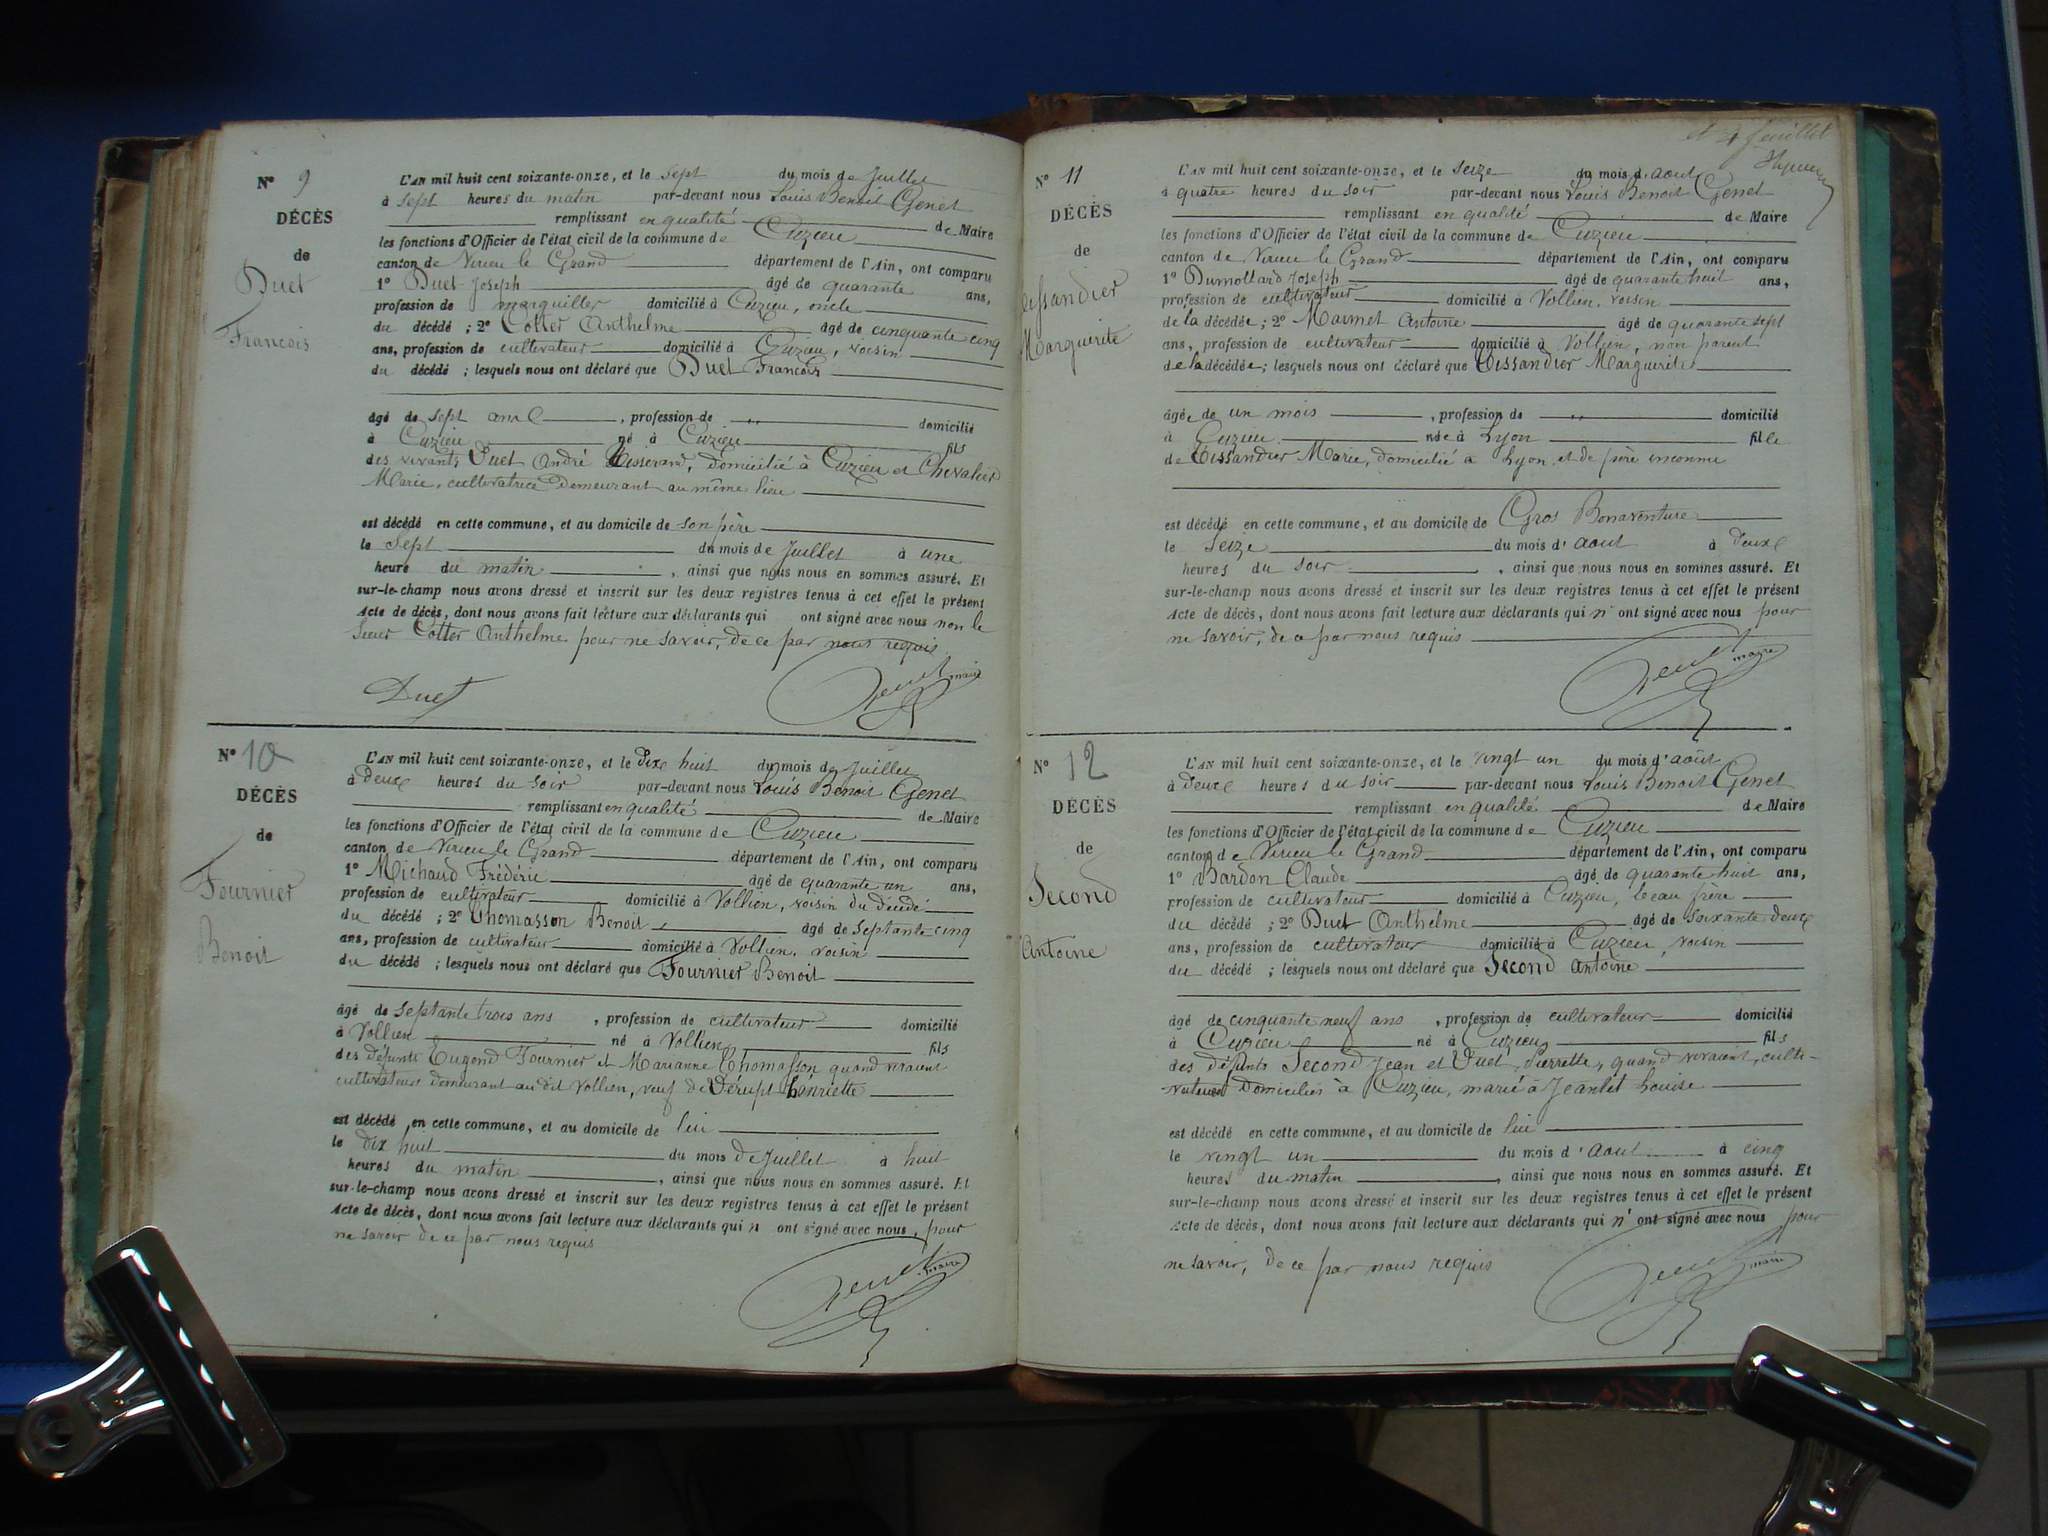 N° 9
DÉCÈS
de
Duet
François
L'AN mil huit cent soixante-onze, et le sept du mois de Juillet
à sept heures du matin par-devant nous Louis Benoit Genet
remplissant en qualité de Maire
les fonctions d'Officier de l'état civil de la commune de Cuzieu
canton de Virieu le Grand département de l'Ain, ont comparu
1° Duet Joseph âgé de quarante ans,
profession de marguiller domicilié à Cuzieu, oncle
du décédé ; 2° Cotter Anthelme âgé de cinquante cinq
ans, profession de cultivateur domicilié à Cuzieu, voisin
du décédé ; lesquels nous ont déclaré que Duet François
âgé de sept ans, profession de " domicilié
à Cuzieu né à Cuzieu fils
des vivants Duet André Tisserand, domicilié à Cuzieu et Chevalier
Marie, cultivatrice demeurant au même lieu
est décédé en cette commune, et au domicile de son père
le Sept du mois de Juillet à une
heure du matin, ainsi que nous nous en sommes assuré. Et
sur-le-champ nous avons dressé et inscrit sur les deux registres tenus à cet effet le présent
Acte de décès, dont nous avons fait lecture aux déclarants qui ont signé avec nous non le
Sieur Cotter Anthelme pour ne savoir, de ce par nous requis
Duet Genet maire
N° 10
DÉCÈS
de
Fournier
Benoit
L'AN mil huit cent soixante-onze, et le Dix huit du mois de Juillet
à deux heures du soir par-devant nous Louis Benoit Genet
remplissant en qualité de Maire
les fonctions d'Officier de l'état civil de la commune de Cuzieu
canton de Virieu le Grand département de l'Ain, ont comparu
1° Michaud Frédéric âgé de quarante un ans,
profession de cultivateur domicilié à Vollien, voisin du décédé
du décédé ; 2° Thomasson Benoit, âgé de septante cinq
ans, profession de cultivateur domicilié à Vollien, voisin
du décédé ; lesquels nous ont déclaré que Fournier Benoit
âgé de septante trois ans, profession de cultivateur domicilié
à Vollien né à Vollien fils
des défunts Fournier et Marianne Thomasson quand vivaient
cultivateurs demeurant au dit Vollien, veuf de Henriette
est décédé en cette commune, et au domicile de lui
le dix huit du mois de Juillet à huit
heures du matin, ainsi que nous nous en sommes assuré. Et
sur-le-champ nous avons dressé et inscrit sur les deux registres tenus à cet effet le présent
Acte de décès, dont nous avons fait lecture aux déclarants qui n' ont signé avec nous, pour
ne savoir de ce par nous requis
Genet maire
et 4 feuillet
N° 11
DÉCÈS
de
Tissandier
Marguerite
L'AN mil huit cent soixante-onze, et le Seize du mois d'aout
à quatre heures du soir par-devant nous Louis Benoit Genet
remplissant en qualité de Maire
les fonctions d'Officier de l'état civil de la commune de Cuzieu
canton de Virieu le Grand département de l'Ain, ont comparu
1° Dumollard Joseph âgé de quarante huit ans,
profession de cultivateur domicilié à Vollien, voisin
de la décédée ; 2° Marmet Antoine âgé de quarante sept
ans, profession de cultivateur domicilié à Vollien, non parent
de la décédée ; lesquels nous ont déclaré que Tissandier Marguerite
âgée de un mois, profession de " domicilié
à Cuzieu née à Lyon fille
de Tissandier Marie, domicilié a Lyon et de père inconnu
est décédé en cette commune, et au domicile de Gros Bonaventure
le Seize du mois d'aout à deux
heures du soir, ainsi que nous nous en sommes assuré. Et
sur-le-champ nous avons dressé et inscrit sur les deux registres tenus à cet effet le présent
Acte de décès, dont nous avons fait lecture aux déclarants qui n' ont signé avec nous pour
ne savoir, de ce par nous requis
Genet maire
N° 12
DÉCÈS
de
Second
Antoine
L'AN mil huit cent soixante-onze, et le vingt un du mois d'août
à deux heures du soir par-devant nous Louis Benoit Genet
remplissant en qualité de Maire
les fonctions d'Officier de l'état civil de la commune de Cuzieu
canton de Virieu le Grand département de l'Ain, ont comparu
1° Bardon Claude âgé de quarante huit ans,
profession de cultivateur domicilié à Cuzieu, beau frère
du décédé ; 2° Duet Anthelme âgé de soixante deux
ans, profession de cultivateur domicilié à Cuzieu, voisin
du décédé ; lesquels nous ont déclaré que Second Antoine
âgé de cinquante neuf ans, profession de cultivateur domicilié
à Cuzieu né à Cuzieu fils
des défunts Second Jean et Duet Pierrette, quand vivaient, culti-
vateurs domiciliés à Cuzieu, marié à Jeantet Louise
est décédé en cette commune, et au domicile de lui
le vingt un du mois d'Aout à cinq
heures du matin, ainsi que nous nous en sommes assuré. Et
sur-le-champ nous avons dressé et inscrit sur les deux registres tenus à cet effet le présent
Acte de décès, dont nous avons fait lecture aux déclarants qui n' ont signé avec nous pour
ne savoir, de ce par nous requis
Genet maire